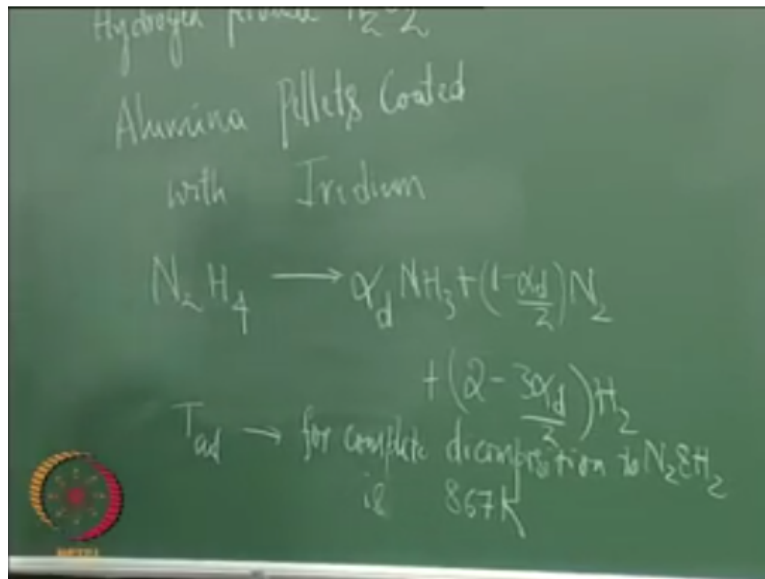 Hydrogen H₂O₂
Alumina Pellets Coated
with Iridium
N₂H₄ → α_d NH₃ + (1 - α_d/2) N₂
+ (2 - 3α_d/2) H₂
T_ad → for complete dicomposition to N₂ & H₂
is 867K
NPTEL